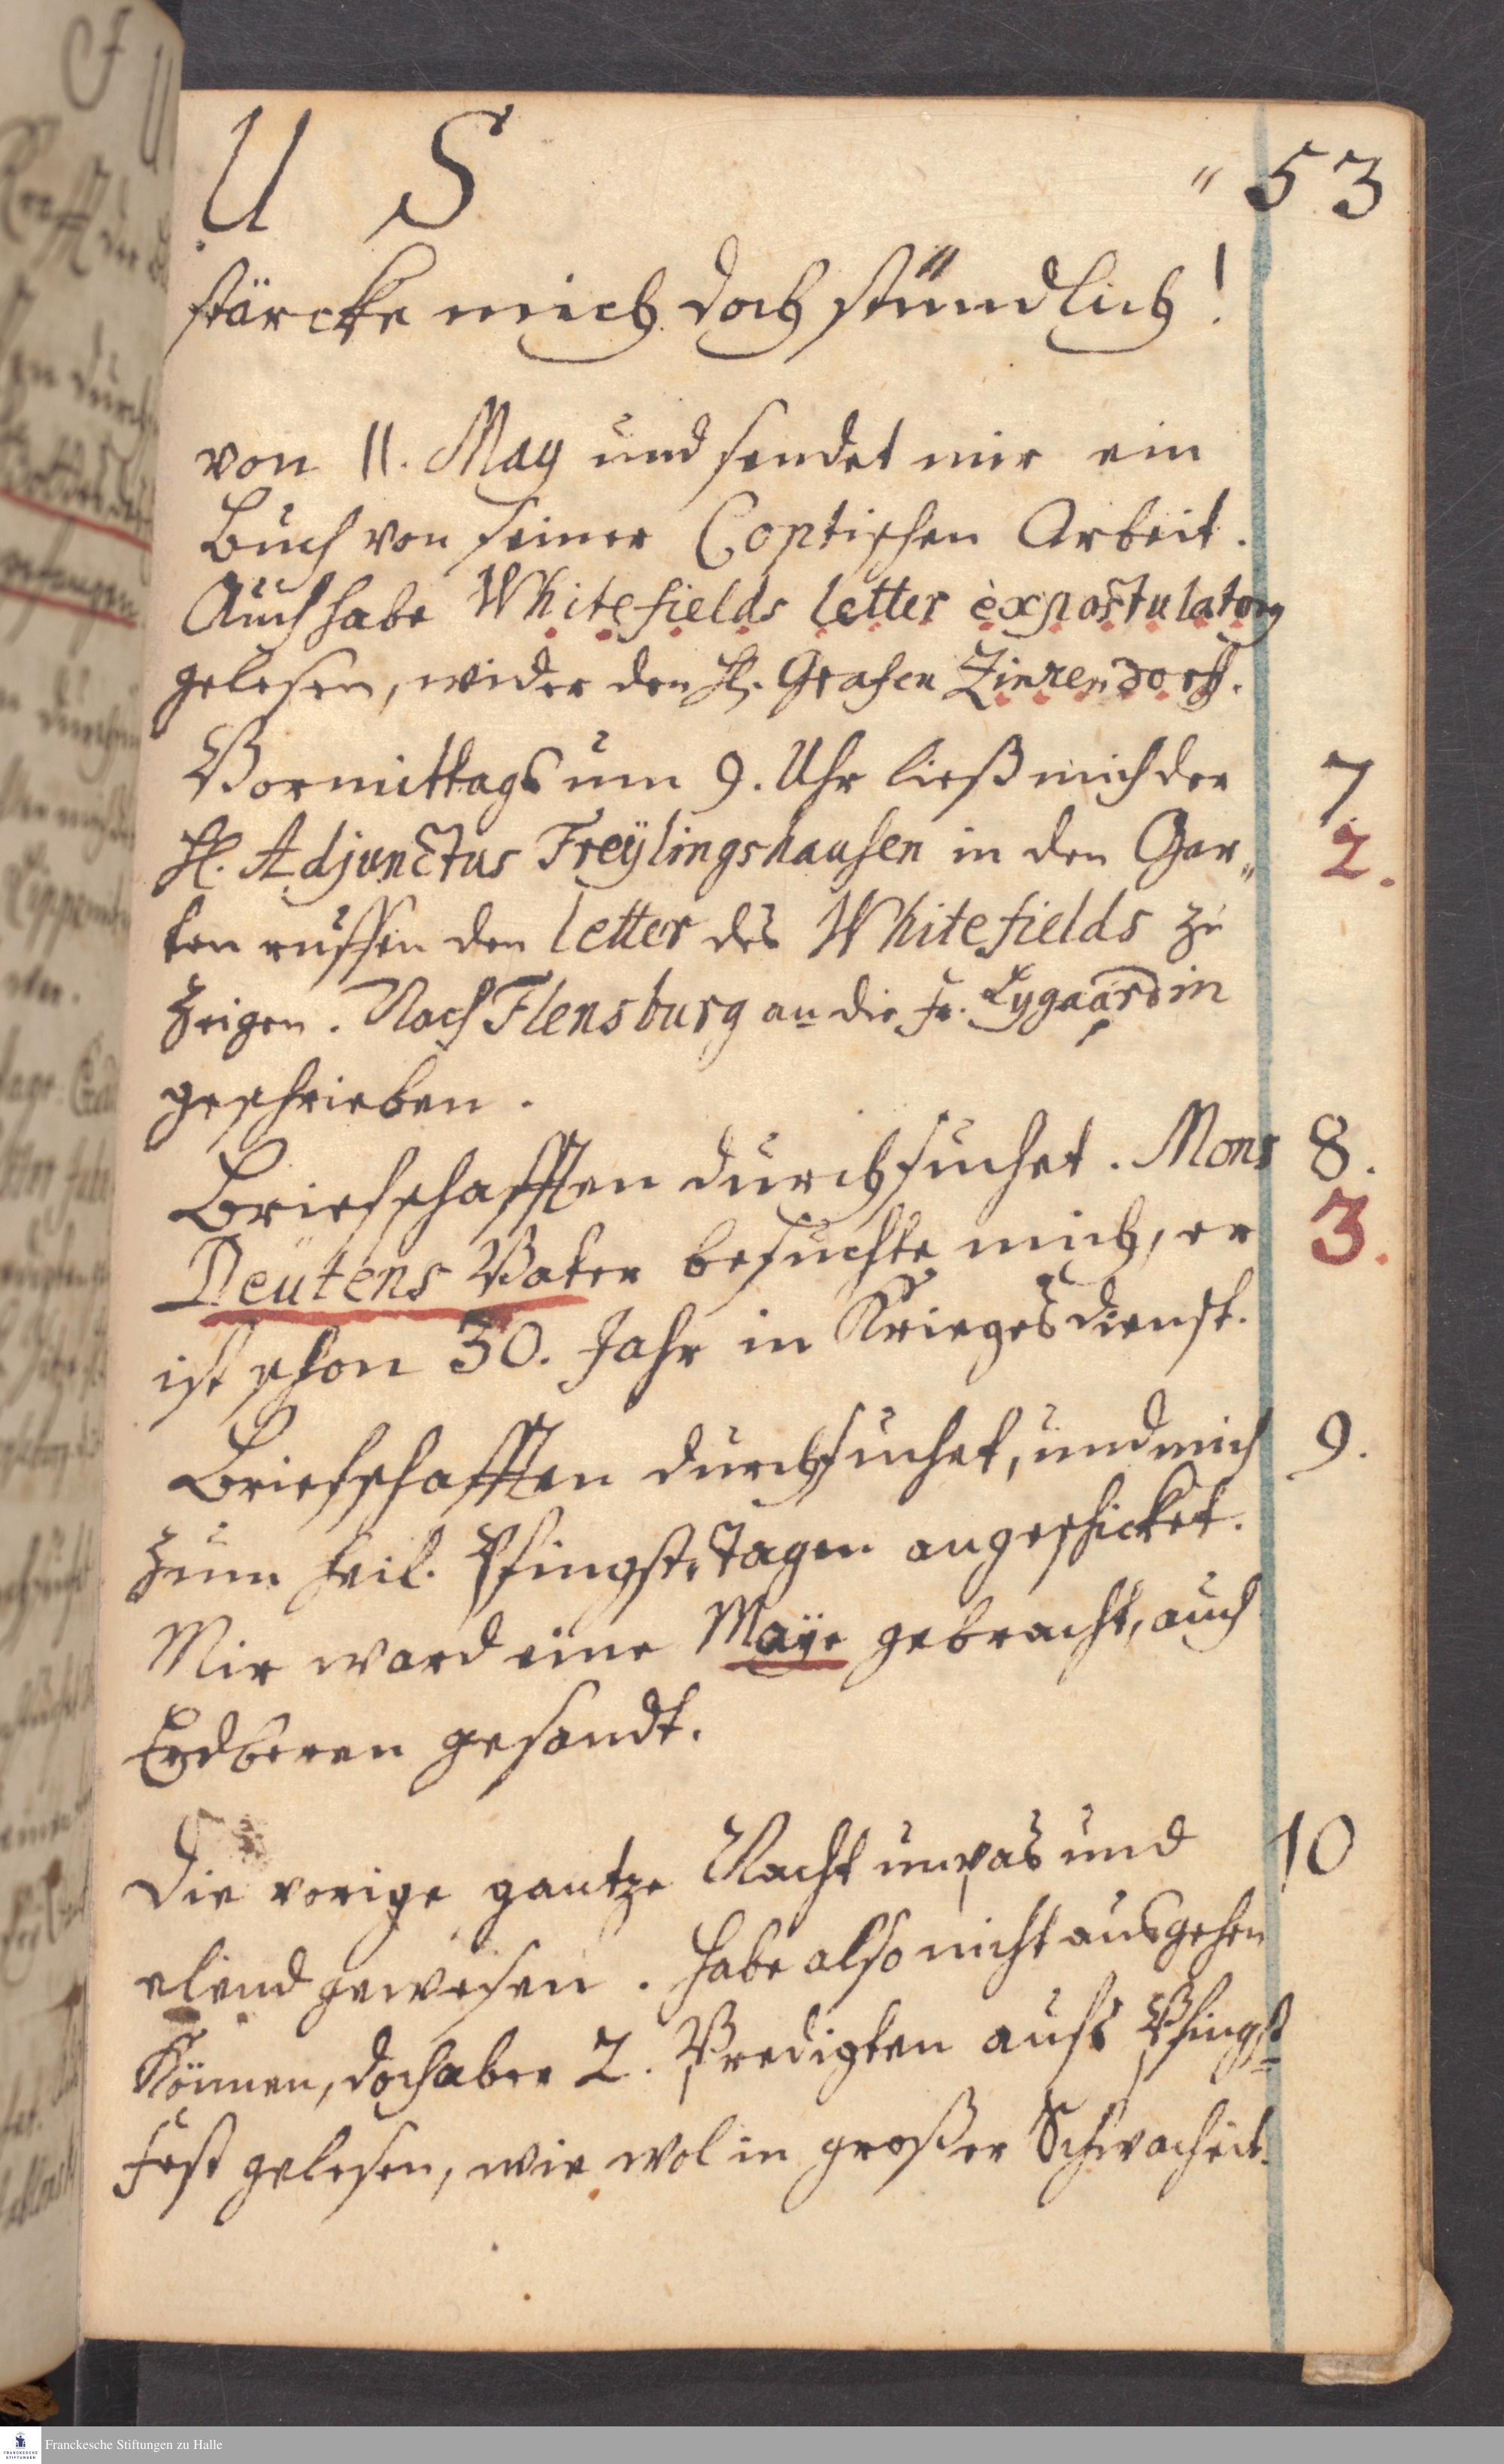 U S " 53
stärcke mich doch stündlich!
von 11. May und sendet mir ein
Buch von seiner Coptischen Arbeit.
Auch habe Whitefields letter expostulatory
gelesen, wider den H. Grafen Zinzendorff.
Vormittags um 9. Uhr ließ mich der 7
H. Adjunctus Freÿlingshausen in den Gar„ 2.
ten ruffen den letter des Whitefields zu
Zeigen. Nach Flensburg an die Fr. Lygaardin
geschrieben.
Briefschafften durchsuchet. Mons 8.
Deütens Vater besuchte mich, er 3.
ist schon 30. Jahr in Kriegesdienst.
Briefschafften durchsuchet, und mich 9.
zum heil. Pfingst-Tagen angeschicket.
Mir ward eine Maÿe gebracht, auch
Erdberen gesandt.
Die vorige gantze Nacht unpas und 10
elend gewesen. Habe also nicht ausgehen
Können, doch aber 2. Predigten aufs Pfingst=
Fest gelesen, wie wol in großer Schwacheit.
Franckesche Stiftungen zu Halle